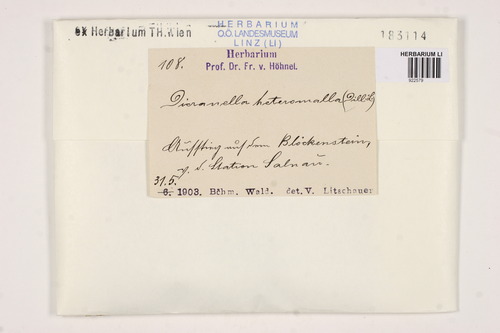 ex Herbarium TH. Wien
HERBARIUM
O.Ö. LANDESMUSEUM
LINZ (LI)
183114
HERBARIUM LI
922579
Herbarium
Prof. Dr. Fr. v. Höhnel.
108.
Dicranella heteromalla (Dill. L.)
Aufstieg auf dem Blöckenstein,
v. d. Station Salnau.
31.5.
6. 1903. Böhm. Wald. det. V. Litschauer